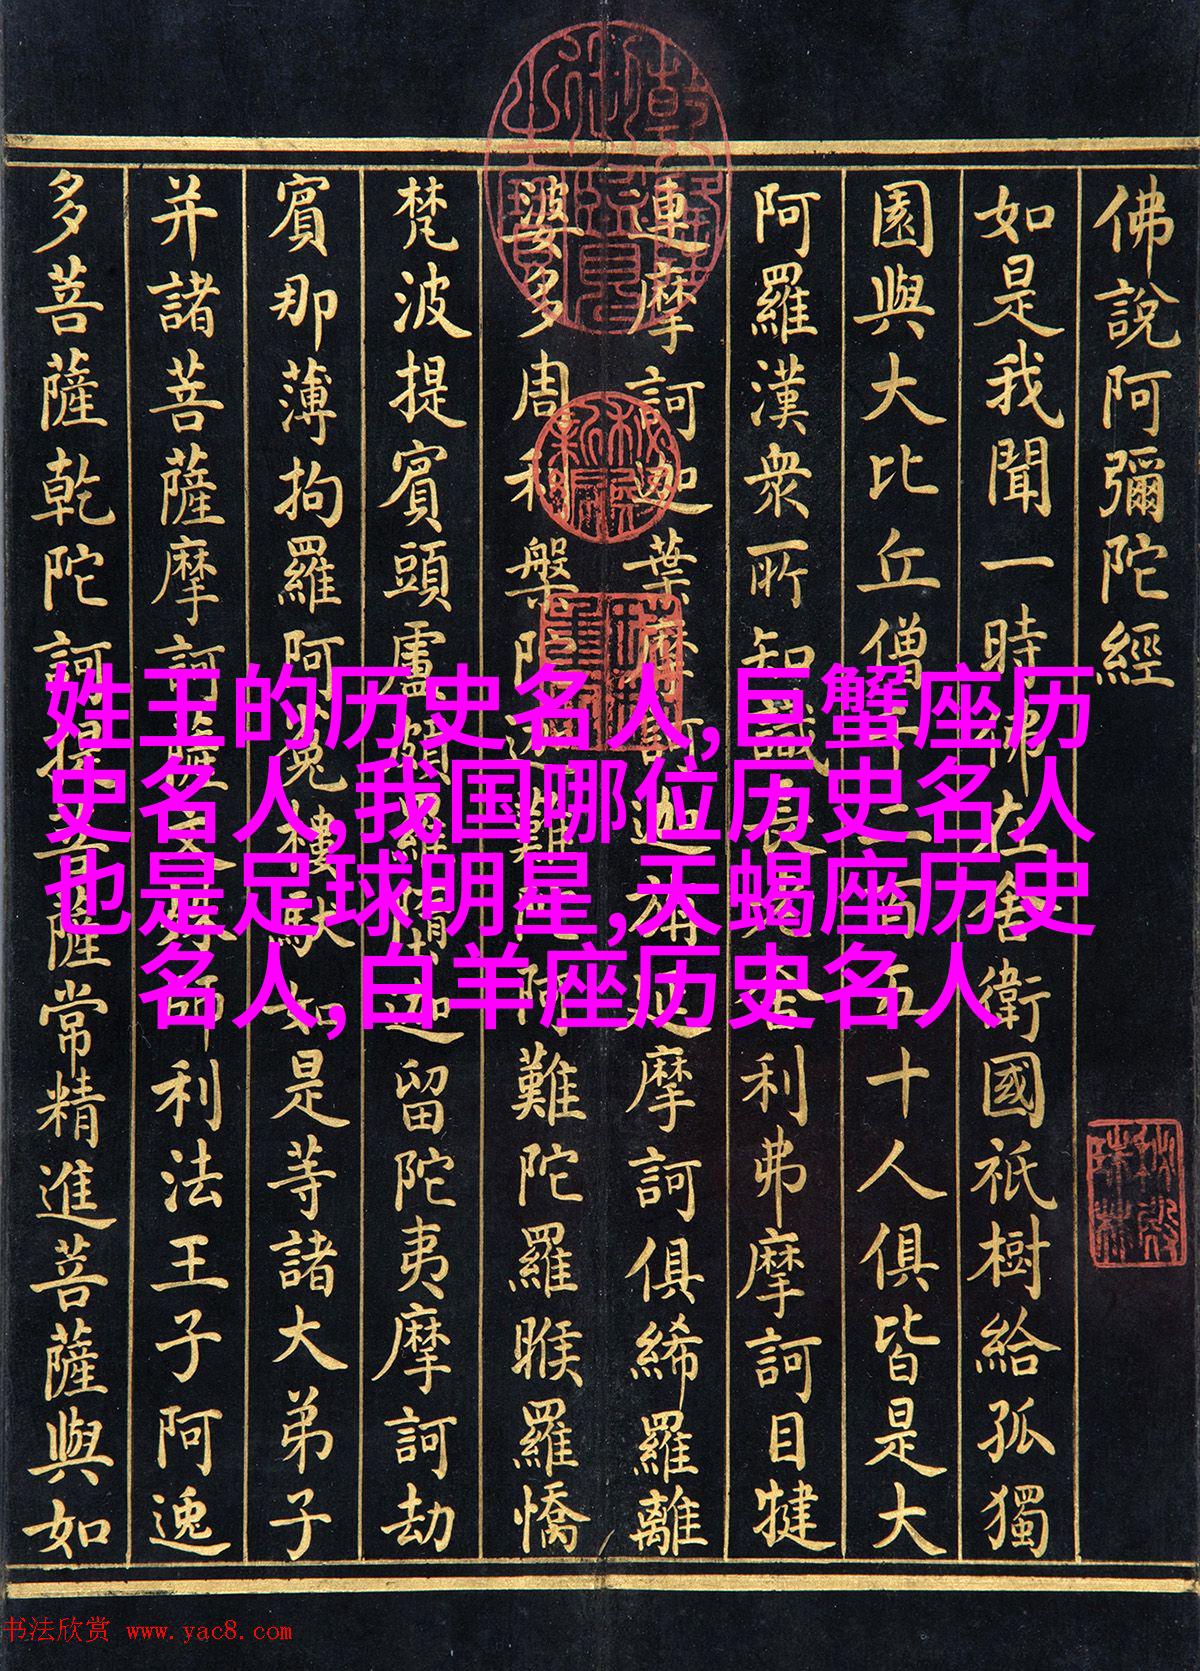 佛說阿彌陀經
如是我聞一時佛在舍衛國祇樹給孤獨
園與大比丘僧千二百五十人俱皆是大
阿羅漢衆所知識長老舍利弗摩訶目犍
連摩訶迦葉摩訶迦旃延摩訶俱絺羅離
婆多周利槃陀迦難陀阿難陀羅睺羅憍
梵波提賓頭盧頗羅墮迦留陀夷摩訶劫
賓那薄拘羅阿㝹樓馱如是等諸大弟子
并諸菩薩摩訶薩文殊師利法王子阿逸
多菩薩乾陀訶提菩薩常精進菩薩與如
姓王的历史名人,巨蟹座历
史名人,我国哪位历史名人
也是足球明星,天蝎座历史
名人,白羊座历史名人
书法欣赏 www.yac8.com